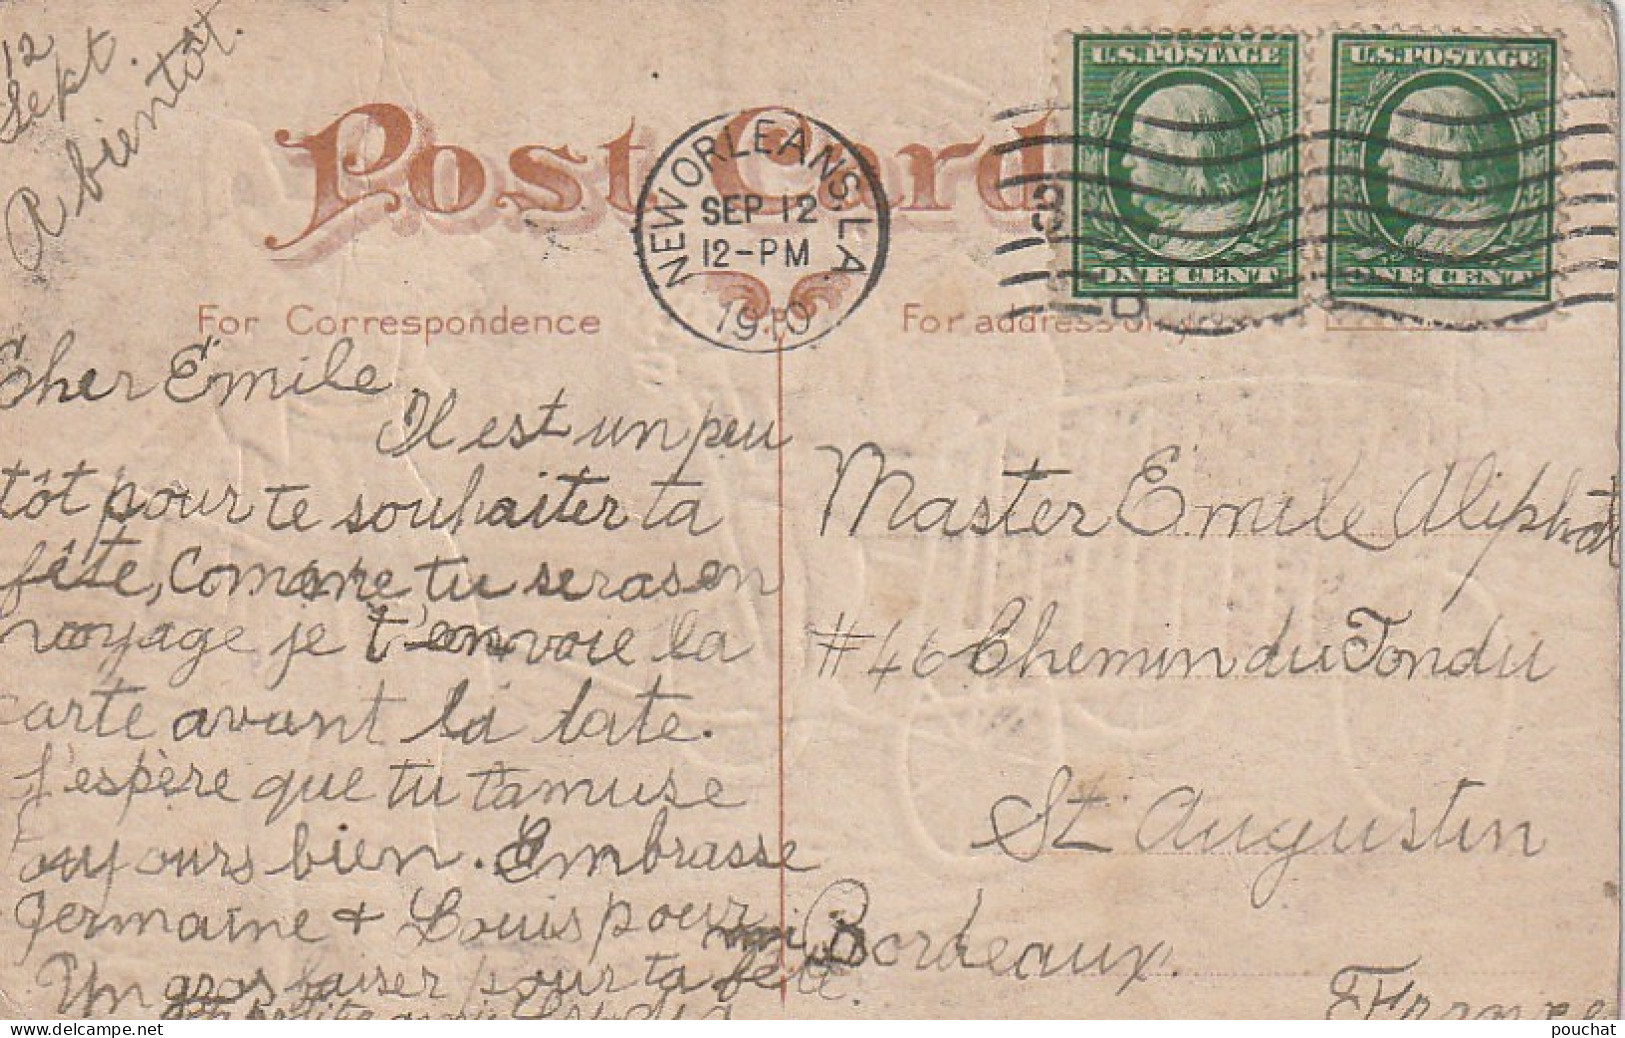 12
Sept.
A bientôt.
Post Card
NEW ORLEANS, LA
SEP 12
12-PM
1910
U.S. POSTAGE
ONE CENT
U.S. POSTAGE
ONE CENT
For Correspondence
For address only
Cher Emile
Il est un peu
tôt pour te souhaiter ta
fête, Comme tu seras en
voyage je t'envoie la
carte avant la date.
J'espère que tu t'amuse
toujours bien. Embrasse
Germaine & Louis pour moi
Un gros baiser pour ta fête.
Ta petite amie
Master Emile Aliphat
#46 Chemin du Tondu
St Augustin
Bordeaux.
France
pouchat
www.delcampe.net